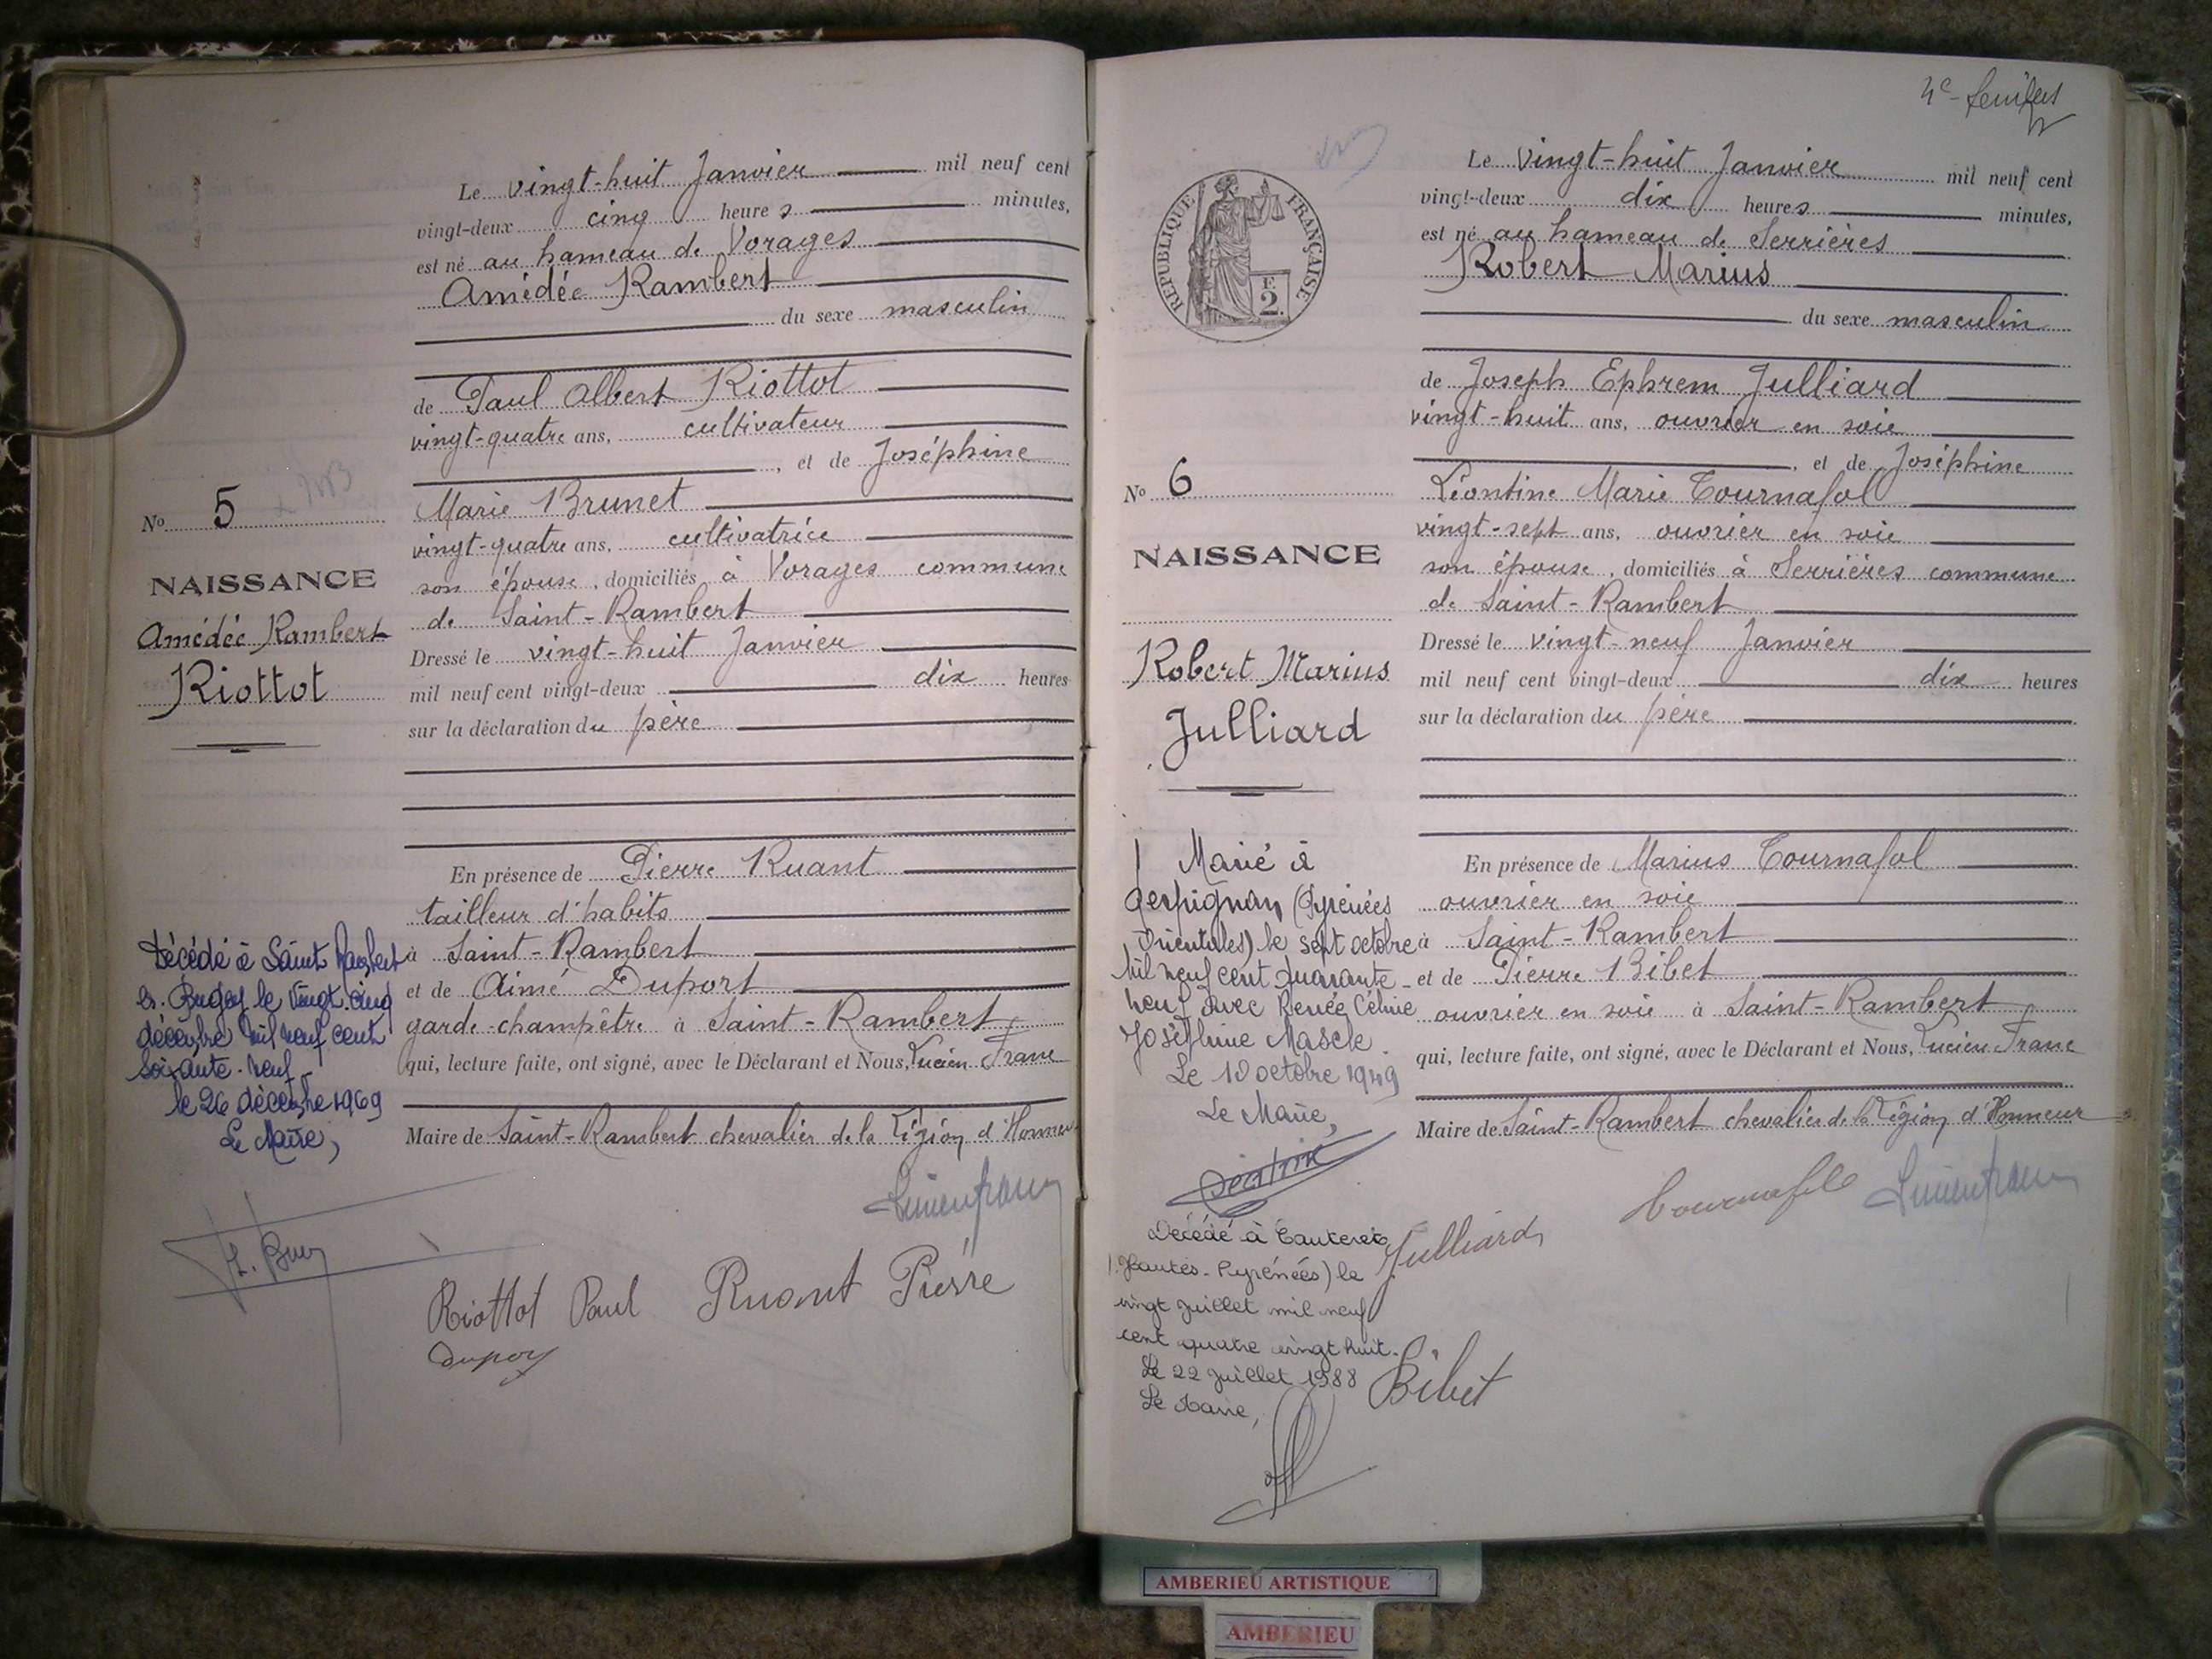 Le vingt-huit Janvier mil neuf cent
vingt-deux cinq heures minutes,
est né au hameau de Vorages
Amédée Rambert
du sexe masculin
de Paul Albert Riottot
vingt-quatre ans, cultivateur
, et de Joséphine
Marie Brunet
vingt-quatre ans, cultivatrice
son épouse, domiciliés à Vorages commune
de Saint-Rambert
Dressé le vingt-huit Janvier
mil neuf cent vingt-deux dix heures
sur la déclaration du père
En présence de Pierre Ruant
tailleur d'habits
à Saint-Rambert
et de Aimé Duport
garde-champêtre à Saint-Rambert
qui, lecture faite, ont signé, avec le Déclarant et Nous, Lucien Franc
Maire de Saint-Rambert chevalier de la Légion d'Honneur
No 5
NAISSANCE
Amédée Rambert
Riottot
Décédé à Saint Rambert
en Bugey le vingt cinq
décembre mil neuf cent
soixante-neuf
le 26 décembre 1969
Le Maire,
Lucien Franc
Riottot Paul Ruant Pierre
Dupor
4e feuillet
REPUBLIQUE FRANÇAISE
E
2.
Le vingt-huit Janvier mil neuf cent
vingt-deux dix heures minutes,
est né au hameau de Serrières
Robert Marius
du sexe masculin
de Joseph Ephrem Julliard
vingt-huit ans, ouvrier en soie
, et de Joséphine
Léontine Marie Tournafol
vingt-sept ans, ouvrier en soie
son épouse, domiciliés à Serrières commune
de Saint-Rambert
Dressé le vingt-neuf Janvier
mil neuf cent vingt-deux dix heures
sur la déclaration du père
En présence de Marius Tournafol
ouvrier en soie
à Saint-Rambert
et de Pierre Bibet
ouvrier en soie à Saint-Rambert
qui, lecture faite, ont signé, avec le Déclarant et Nous, Lucien Franc
Maire de Saint-Rambert chevalier de la Légion d'Honneur
No 6
NAISSANCE
Robert Marius
Julliard
Marié à
Perpignan (Pyrénées
Orientales) le sept octobre
mil neuf cent quarante-
neuf avec Renée Céline
Joséphine Mascle
Le 10 octobre 1949
Le Maire,
Décédé à Cauterets
(Hautes-Pyrénées) le
vingt juillet mil neuf
cent quatre vingt huit.
Le 22 juillet 1988
Le Maire,
Julliard Tournafol Lucien Franc
Bibet
AMBERIEU ARTISTIQUE
AMBERIEU